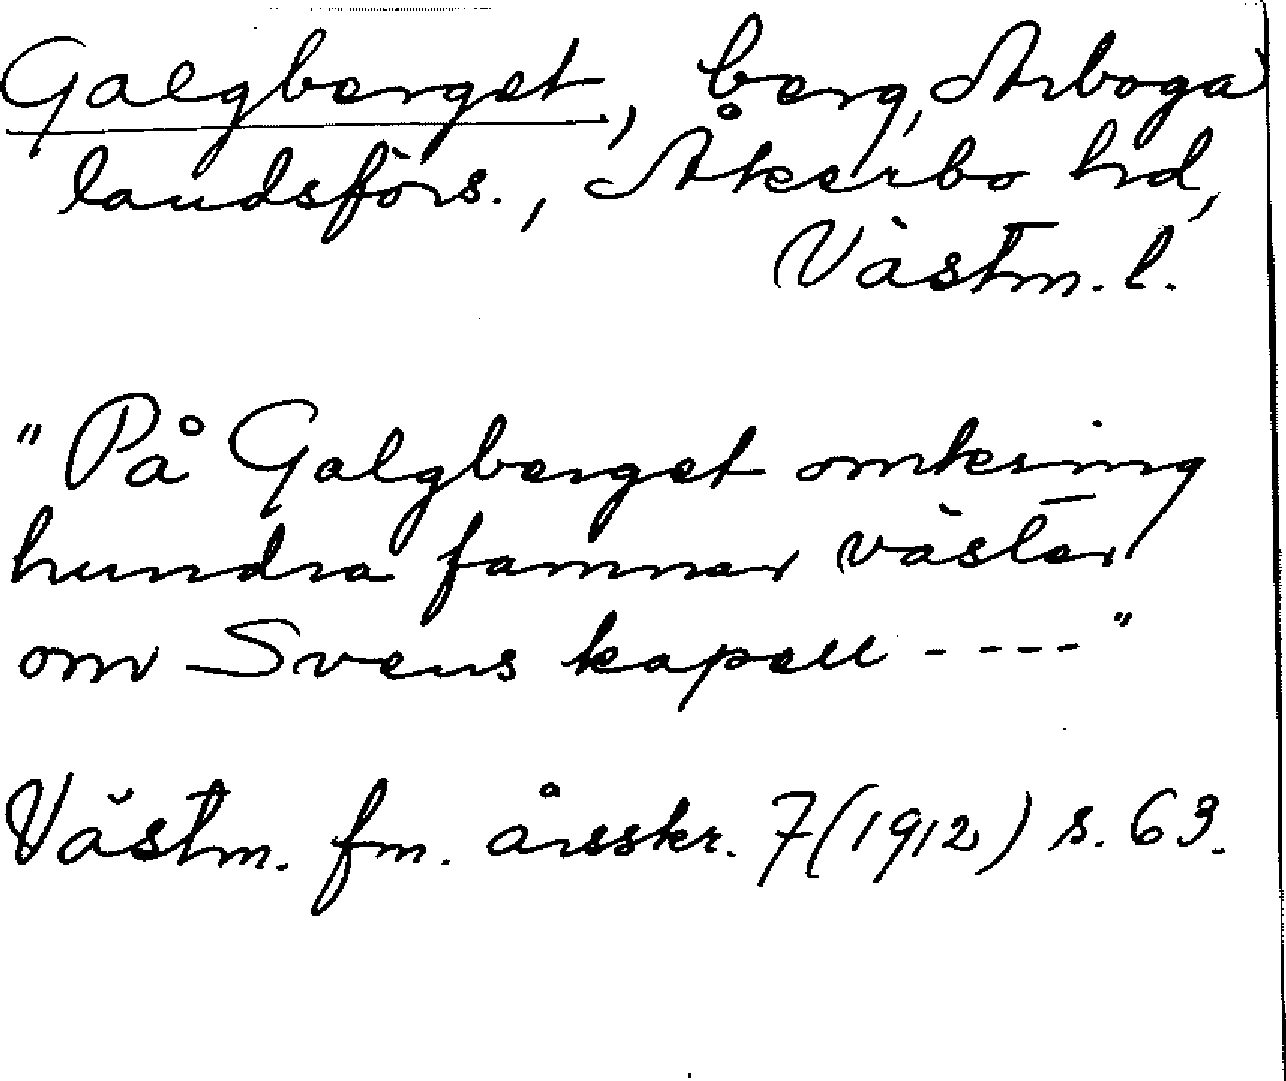 Galgberget, berg, Arboga
landsförs., Åkerbo hd,
Västm. l.
"På Galgberget omkring
hundra famnar väster
om Svens kapell ----"
Västm. fm. årsskr. 7(1912) s. 63.